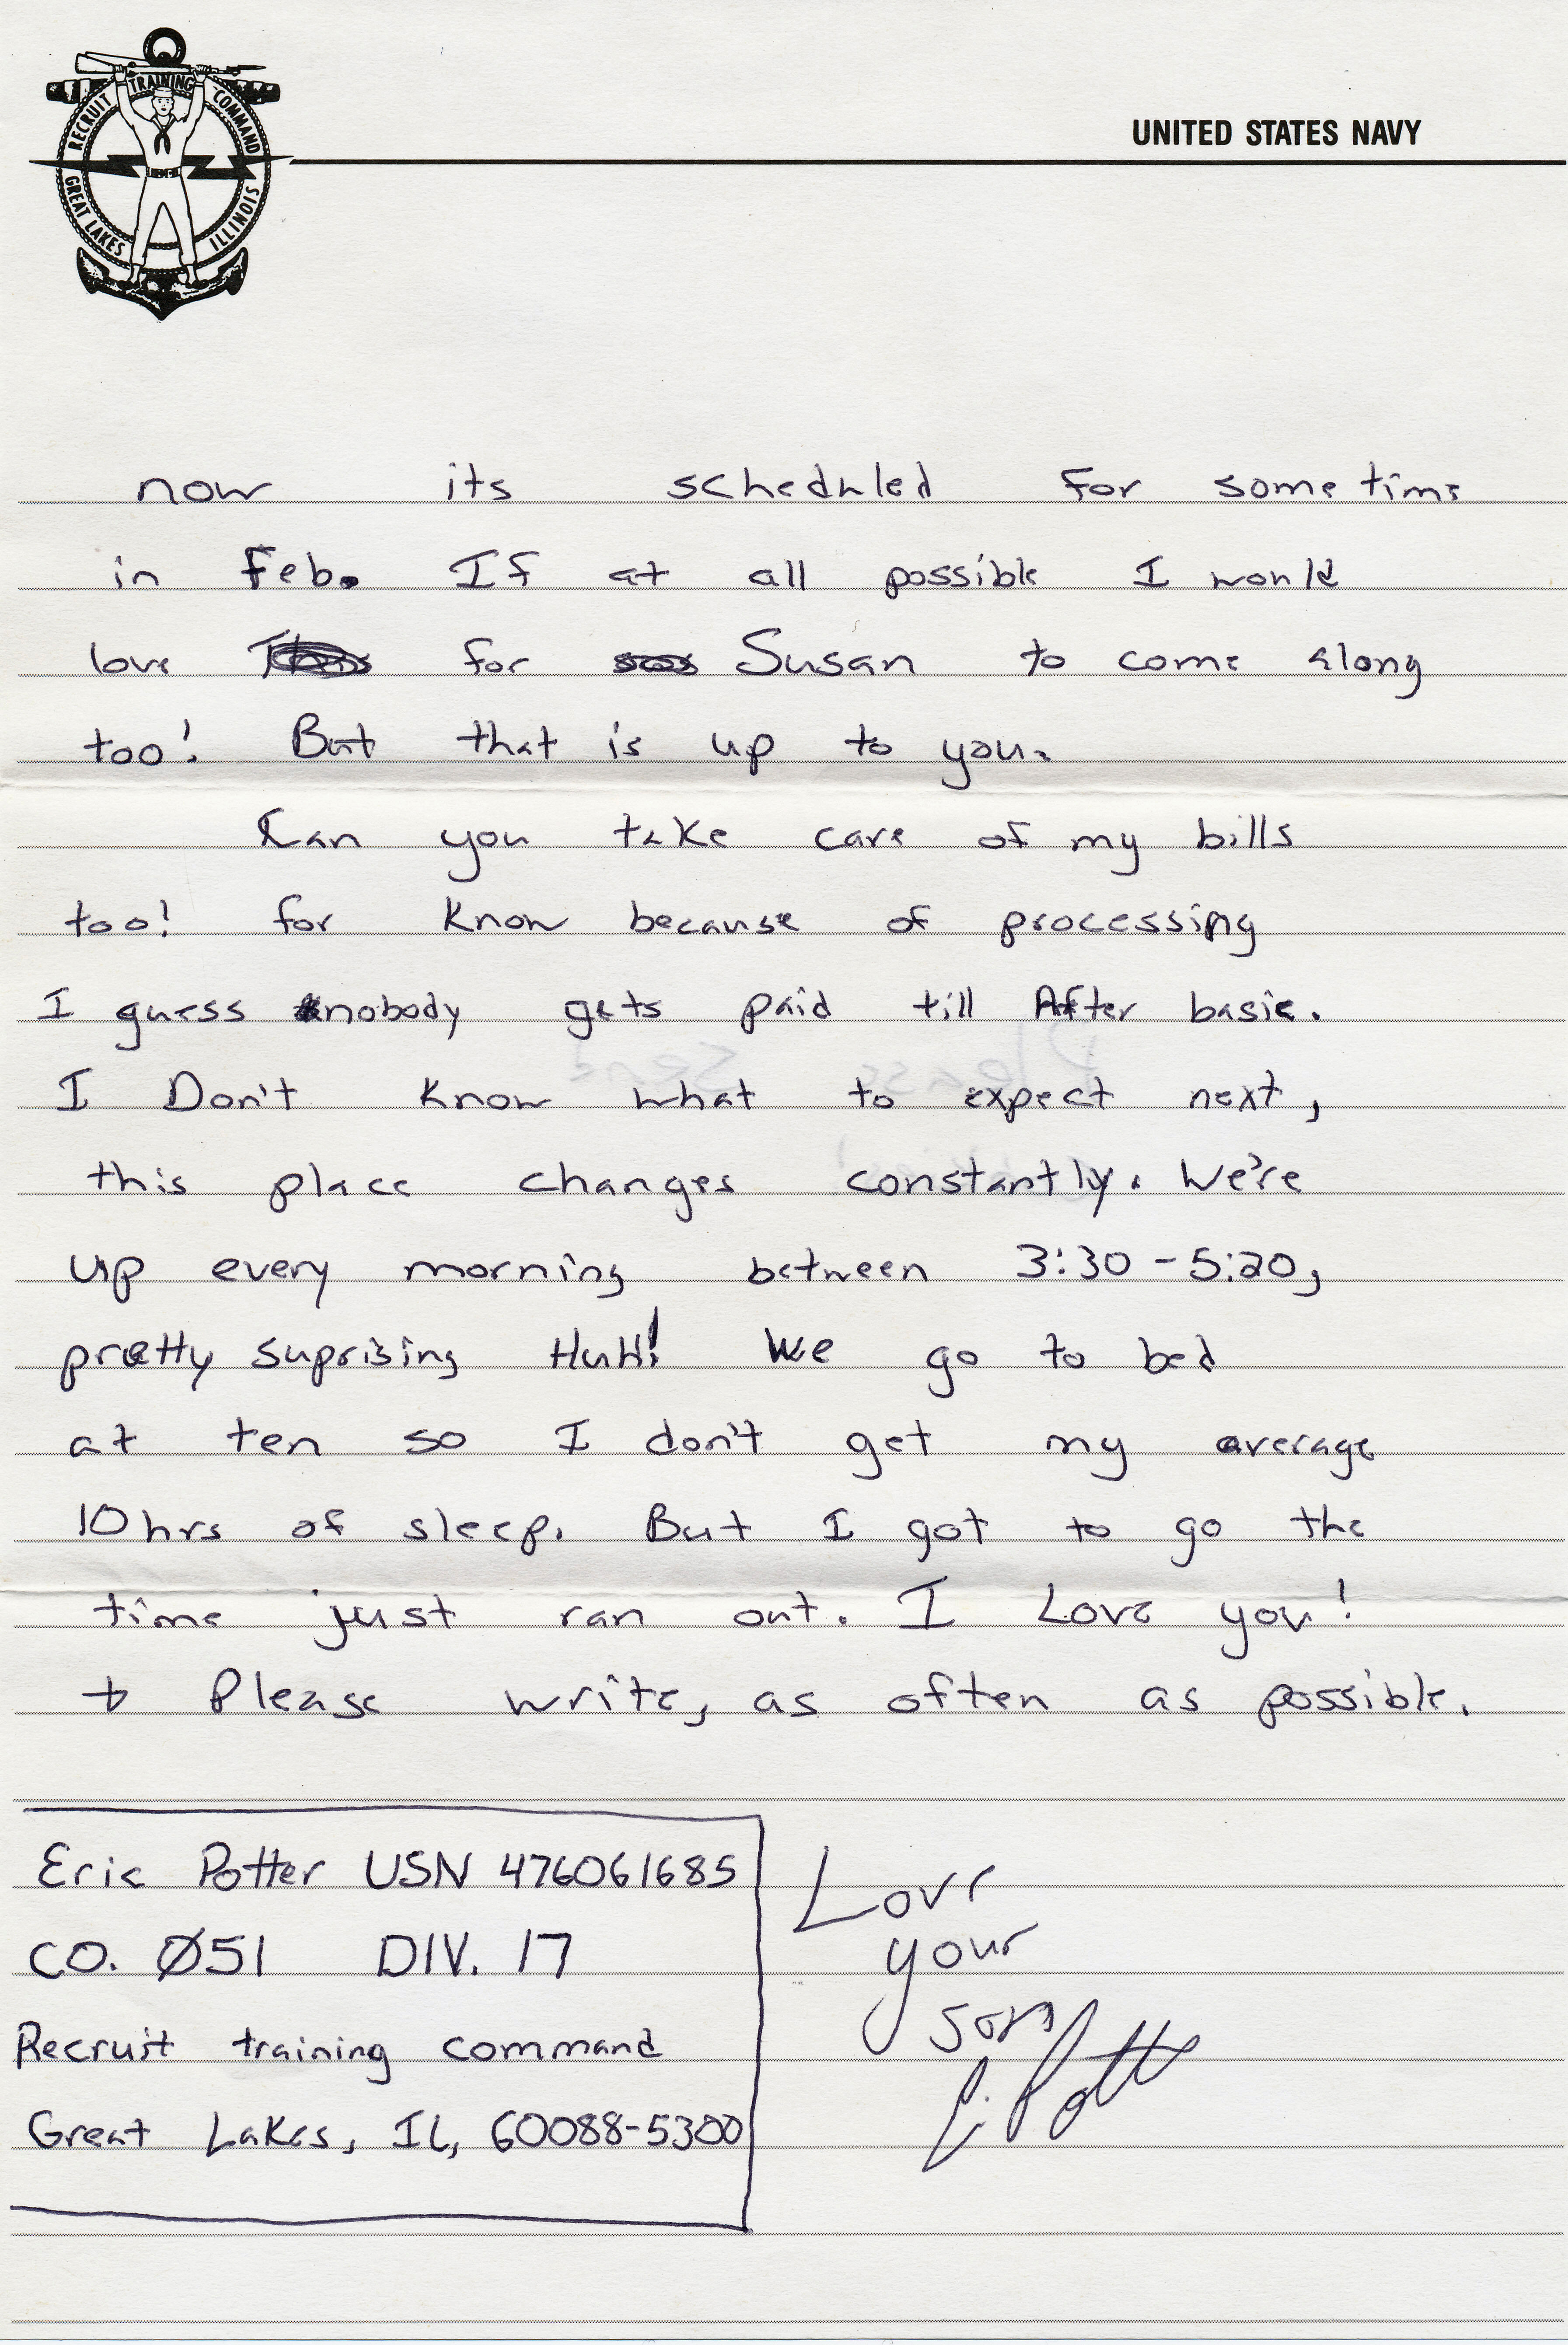 RECRUIT TRAINING COMMAND
GREAT LAKES ILLINOIS
UNITED STATES NAVY
now its scheduled for sometime
in Feb. If at all possible I would
love for Susan to come along
too! But that is up to you.
Can you take care of my bills
too! for know because of processing
I guess nobody gets paid till After basic.
I Don't know what to expect next,
this place changes constantly. We're
up every morning between 3:30-5:20,
pretty suprising HuH! We go to bed
at ten so I don't get my average
10 hrs of sleep. But I got to go the
time just ran out. I Love you!
+ Please write, as often as possible.
Eric Potter USN 476061685
CO. Ø51 DIV. 17
Recruit training command
Great Lakes, IL, 60088-5300
Love
your
son
E. Potter